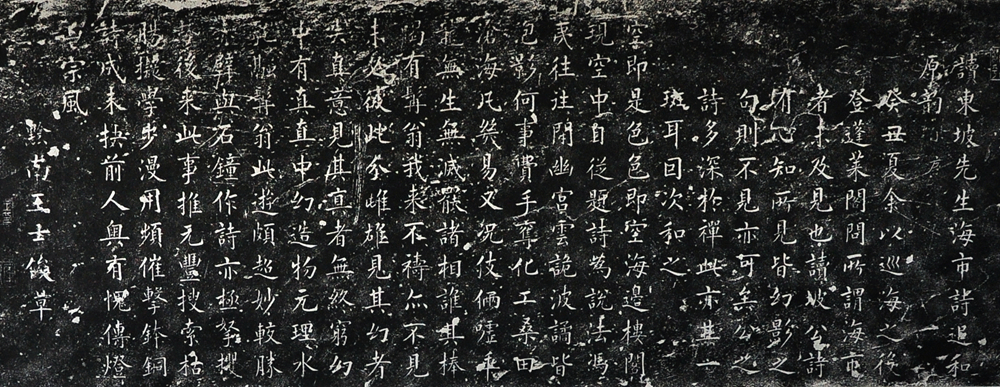 讀東坡先生海市詩追和
原韵
癸丑夏余以巡海之後
登蓬萊閣問所謂海市
者未及見也讀坡公詩
有心知所見皆幻影之
句則不見亦可矣公之
詩多深於禪此亦其一
斑耳因次和之
空即是色色即空海邊樓閣
現空中自從題詩為說法馮
夷往往開幽宮雲詭波譎皆
泡影何事費手奪化工桑田
滄海凡幾易又況伎倆噓乘
龍無生無滅罷諸相誰其捧
有髯翁我來不禱亦不見
未必彼此分雌雄見其幻者
失真意見其真者無終窮幻
中有真真中幻造物元理水
乳融髯翁此遊頗超妙較勝
赤壁與石鐘作詩亦極拏攫
後來此事推元豐搜索枯
腸擬學步漫用頻催擊鉢銅
詩成未抉前人奧有愧傳燈
與宗風
黔南王士俊草